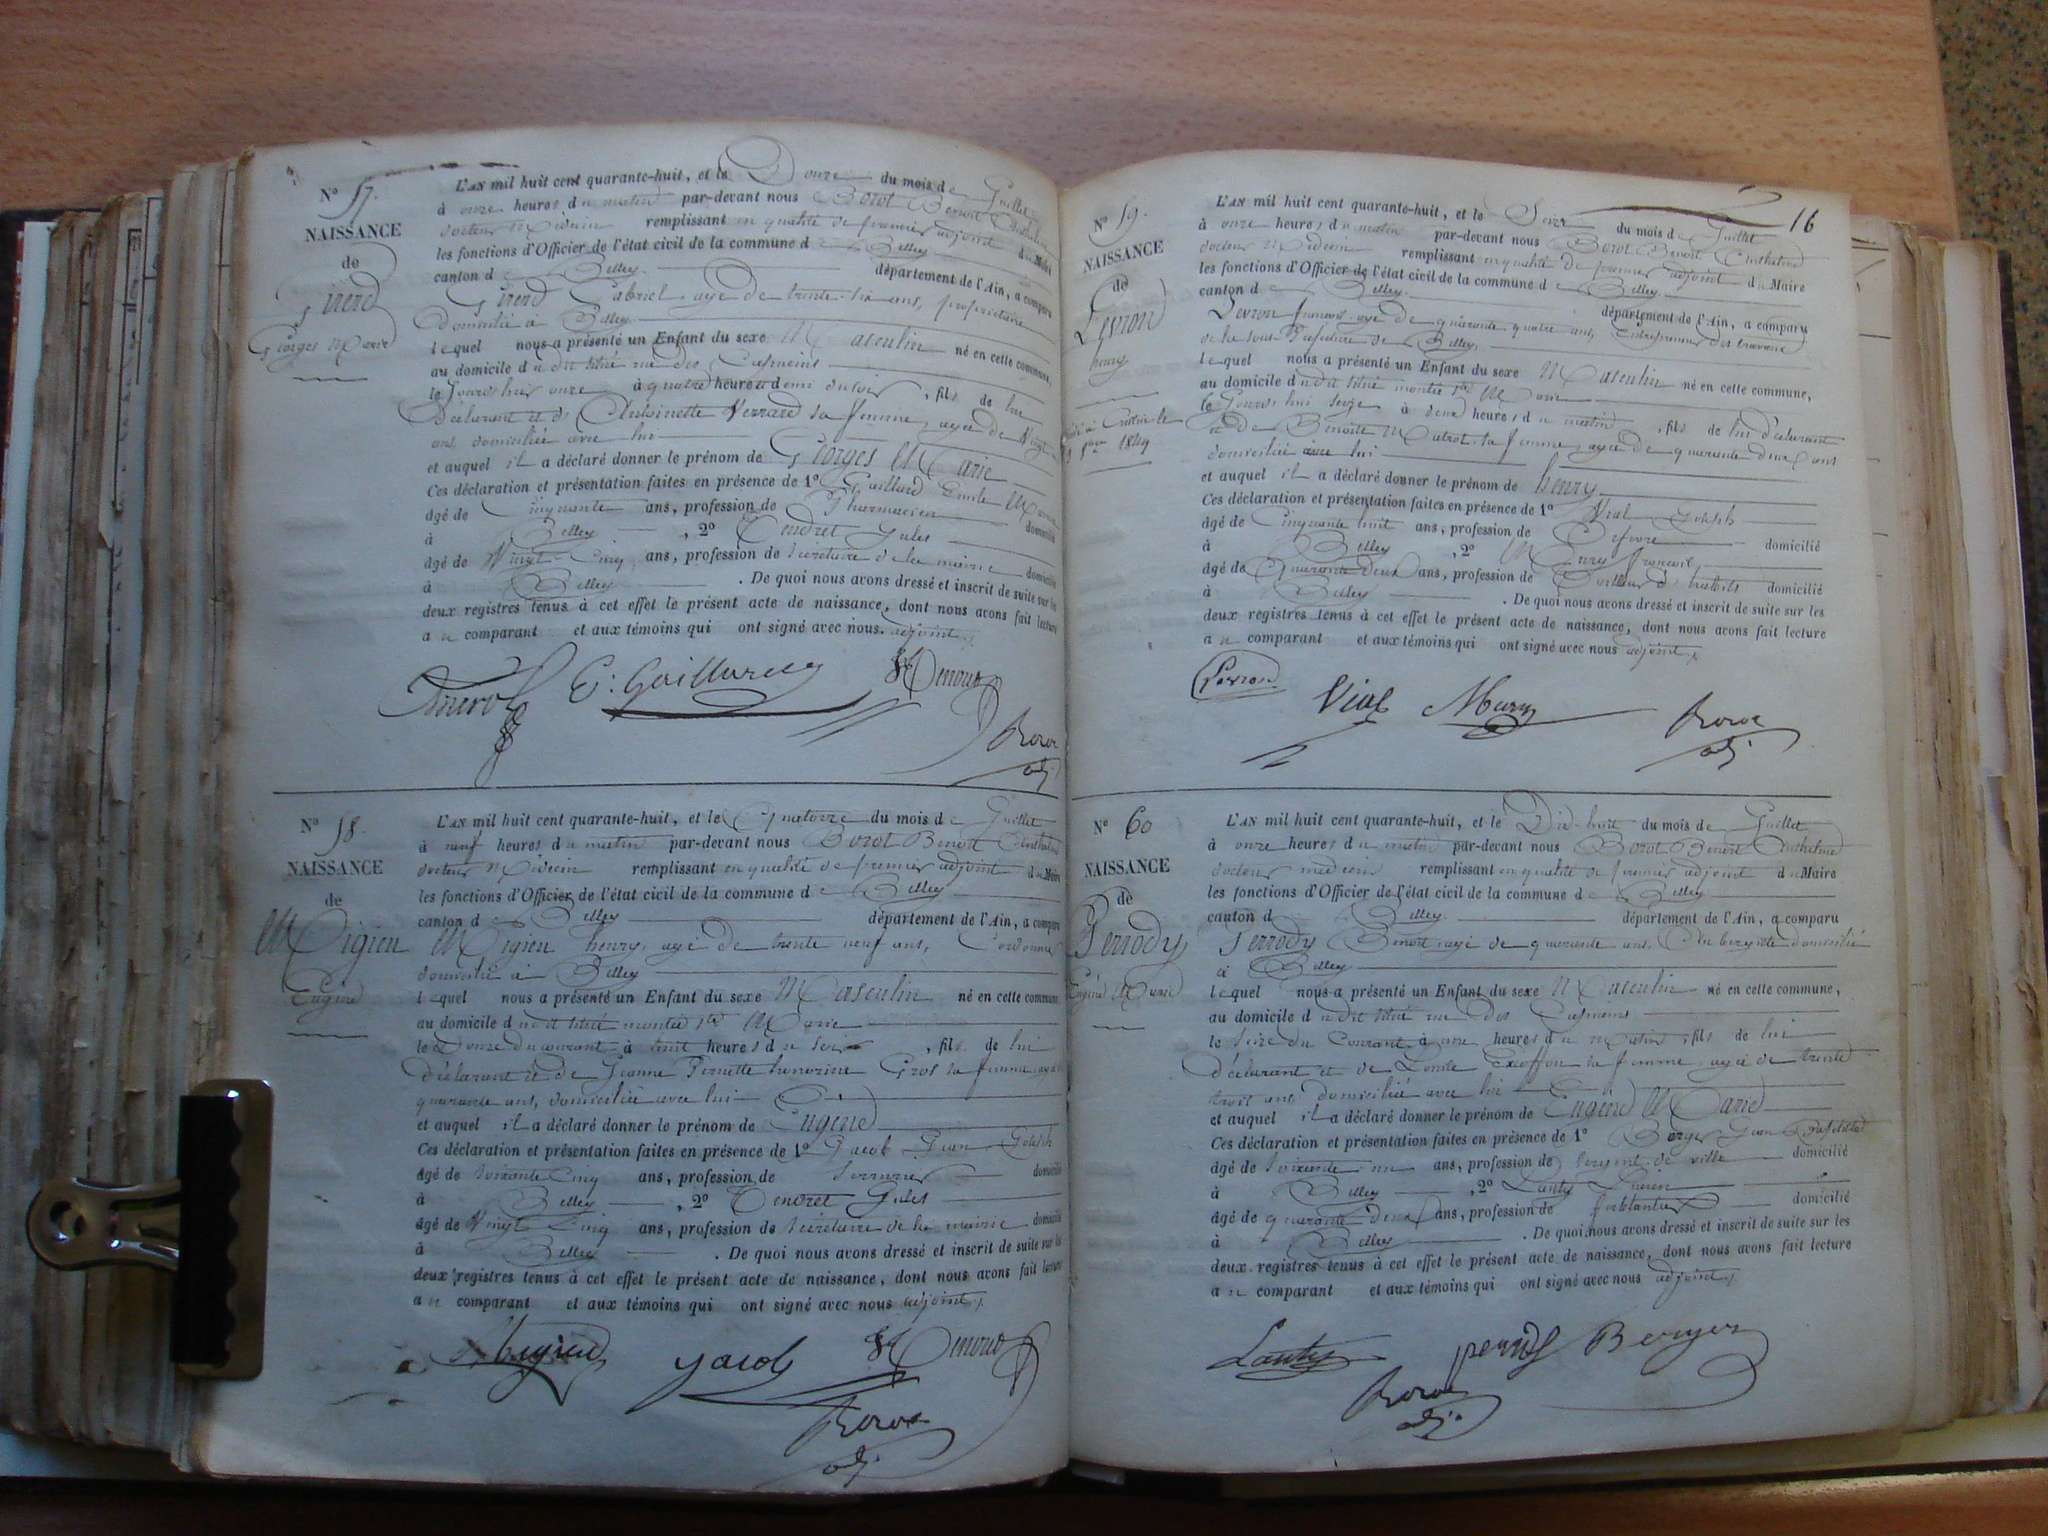 N° 57.
NAISSANCE
de
Girerd
Georges Marie
L'AN mil huit cent quarante-huit, et le Douze du mois de Juillet
à onze heures du matin par-devant nous Borot Benoit Anthelme
docteur Médecin remplissant en qualité de premier adjoint du Maire
les fonctions d'Officier de l'état civil de la commune de Belley
canton de Belley département de l'Ain, a comparu
Girerd Gabriel, agé de trente six ans, propriétaire
domicilié à Belley
lequel nous a présenté un Enfant du sexe Masculin né en cette commune,
au domicile du dit situé rue des Capucins
le jourd'hui onze à quatre heures et demi du soir, fils de lui
Déclarant et de Antoinette Verrard sa femme, agée de Vingt
ans, domiciliée avec lui
et auquel il a déclaré donner le prénom de Georges Marie
Ces déclaration et présentation faites en présence de 1° Gaillard Emile
âgé de Cinquante ans, profession de Pharmacien domicilié
à Belley, 2° Tendret Jules
âgé de Vingt Cinq ans, profession de Secrétaire de la mairie domicilié
à Belley. De quoi nous avons dressé et inscrit de suite sur les
deux registres tenus à cet effet le présent acte de naissance, dont nous avons fait lecture
au comparant et aux témoins qui ont signé avec nous adjoint.
E. Gaillard
Borot
adj.
N° 58.
NAISSANCE
de
Migieu
Eugène
L'AN mil huit cent quarante-huit, et le Quatorze du mois de Juillet
à neuf heures du matin par-devant nous Borot Benoit Anthelme
docteur Médecin remplissant en qualité de premier adjoint du Maire
les fonctions d'Officier de l'état civil de la commune de Belley
canton de Belley département de l'Ain, a comparu
Migieu henry, agé de trente neuf ans, Cordonnier
domicilié à Belley
lequel nous a présenté un Enfant du sexe Masculin né en cette commune
au domicile du dit situé montée Ste Marie
le Douze du courant à huit heures du soir, fils de lui
déclarant et de Jeanne Pernette honorine Gros sa femme, agée
quarante ans, domiciliée avec lui
et auquel il a déclaré donner le prénom de Eugène
Ces déclaration et présentation faites en présence de 1° Jacob Jean Joseph
âgé de soixante Cinq ans, profession de serrurier domicilié
à Belley, 2° Tendret Jules
âgé de Vingt Cinq ans, profession de Secrétaire de la mairie domicilié
à Belley. De quoi nous avons dressé et inscrit de suite sur les
deux registres tenus à cet effet le présent acte de naissance, dont nous avons fait lecture
au comparant et aux témoins qui ont signé avec nous adjoint.
Migieu Jacob
Borot
adj.
16
N° 59.
NAISSANCE
de
Levron
henry
1849
L'AN mil huit cent quarante-huit, et le Seize du mois de Juillet
à onze heures du matin par-devant nous Borot Benoit Anthelme
docteur Médecin remplissant en qualité de premier adjoint du Maire
les fonctions d'Officier de l'état civil de la commune de Belley
canton de Belley département de l'Ain, a comparu
Levron françois agé de quarante quatre ans, Entrepreneur des travaux
de la sous Préfecture de Belley
lequel nous a présenté un Enfant du sexe Masculin né en cette commune,
au domicile du dit situé montée Ste Marie
le jourd'hui seize à deux heures du matin, fils de lui déclarant
et de Benoite Matrot sa femme, agée de quarante deux ans
domiciliée avec lui
et auquel il a déclaré donner le prénom de henry
Ces déclaration et présentation faites en présence de 1° Vial Joseph
âgé de Cinquante huit ans, profession de domicilié
à Belley, 2° françois
âgé de Quarante deux ans, profession de Tailleur d'habits domicilié
à Belley. De quoi nous avons dressé et inscrit de suite sur les
deux registres tenus à cet effet le présent acte de naissance, dont nous avons fait lecture
au comparant et aux témoins qui ont signé avec nous adjoint.
Levron
Vial Borot
adj.
N° 60
NAISSANCE
de
Perrody
Eugène Marie
L'AN mil huit cent quarante-huit, et le Dix-huit du mois de Juillet
à onze heures du matin par-devant nous Borot Benoit Anthelme
docteur medecin remplissant en qualité de premier adjoint du Maire
les fonctions d'Officier de l'état civil de la commune de Belley
canton d Belley département de l'Ain, a comparu
Perrody Benoit agé de quarante ans, Aubergiste domicilié
à Belley
lequel nous a présenté un Enfant du sexe Masculin né en cette commune,
au domicile du dit situé rue des Capucins
le seize du Courant à heures du matin, fils de lui
déclarant et de sa femme, agée de trente
trois ans, domiciliée avec lui
et auquel il a déclaré donner le prénom de Eugène Marie
Ces déclaration et présentation faites en présence de 1° Berger Jean
âgé de soixante un ans, profession de sergent de ville domicilié
à Belley, 2° Lanty
âgé de quarante deux ans, profession de ferblantier domicilié
à Belley. De quoi nous avons dressé et inscrit de suite sur les
deux registres tenus à cet effet le présent acte de naissance, dont nous avons fait lecture
au comparant et aux témoins qui ont signé avec nous adjoint.
Lanty Berger
Borot
adj.